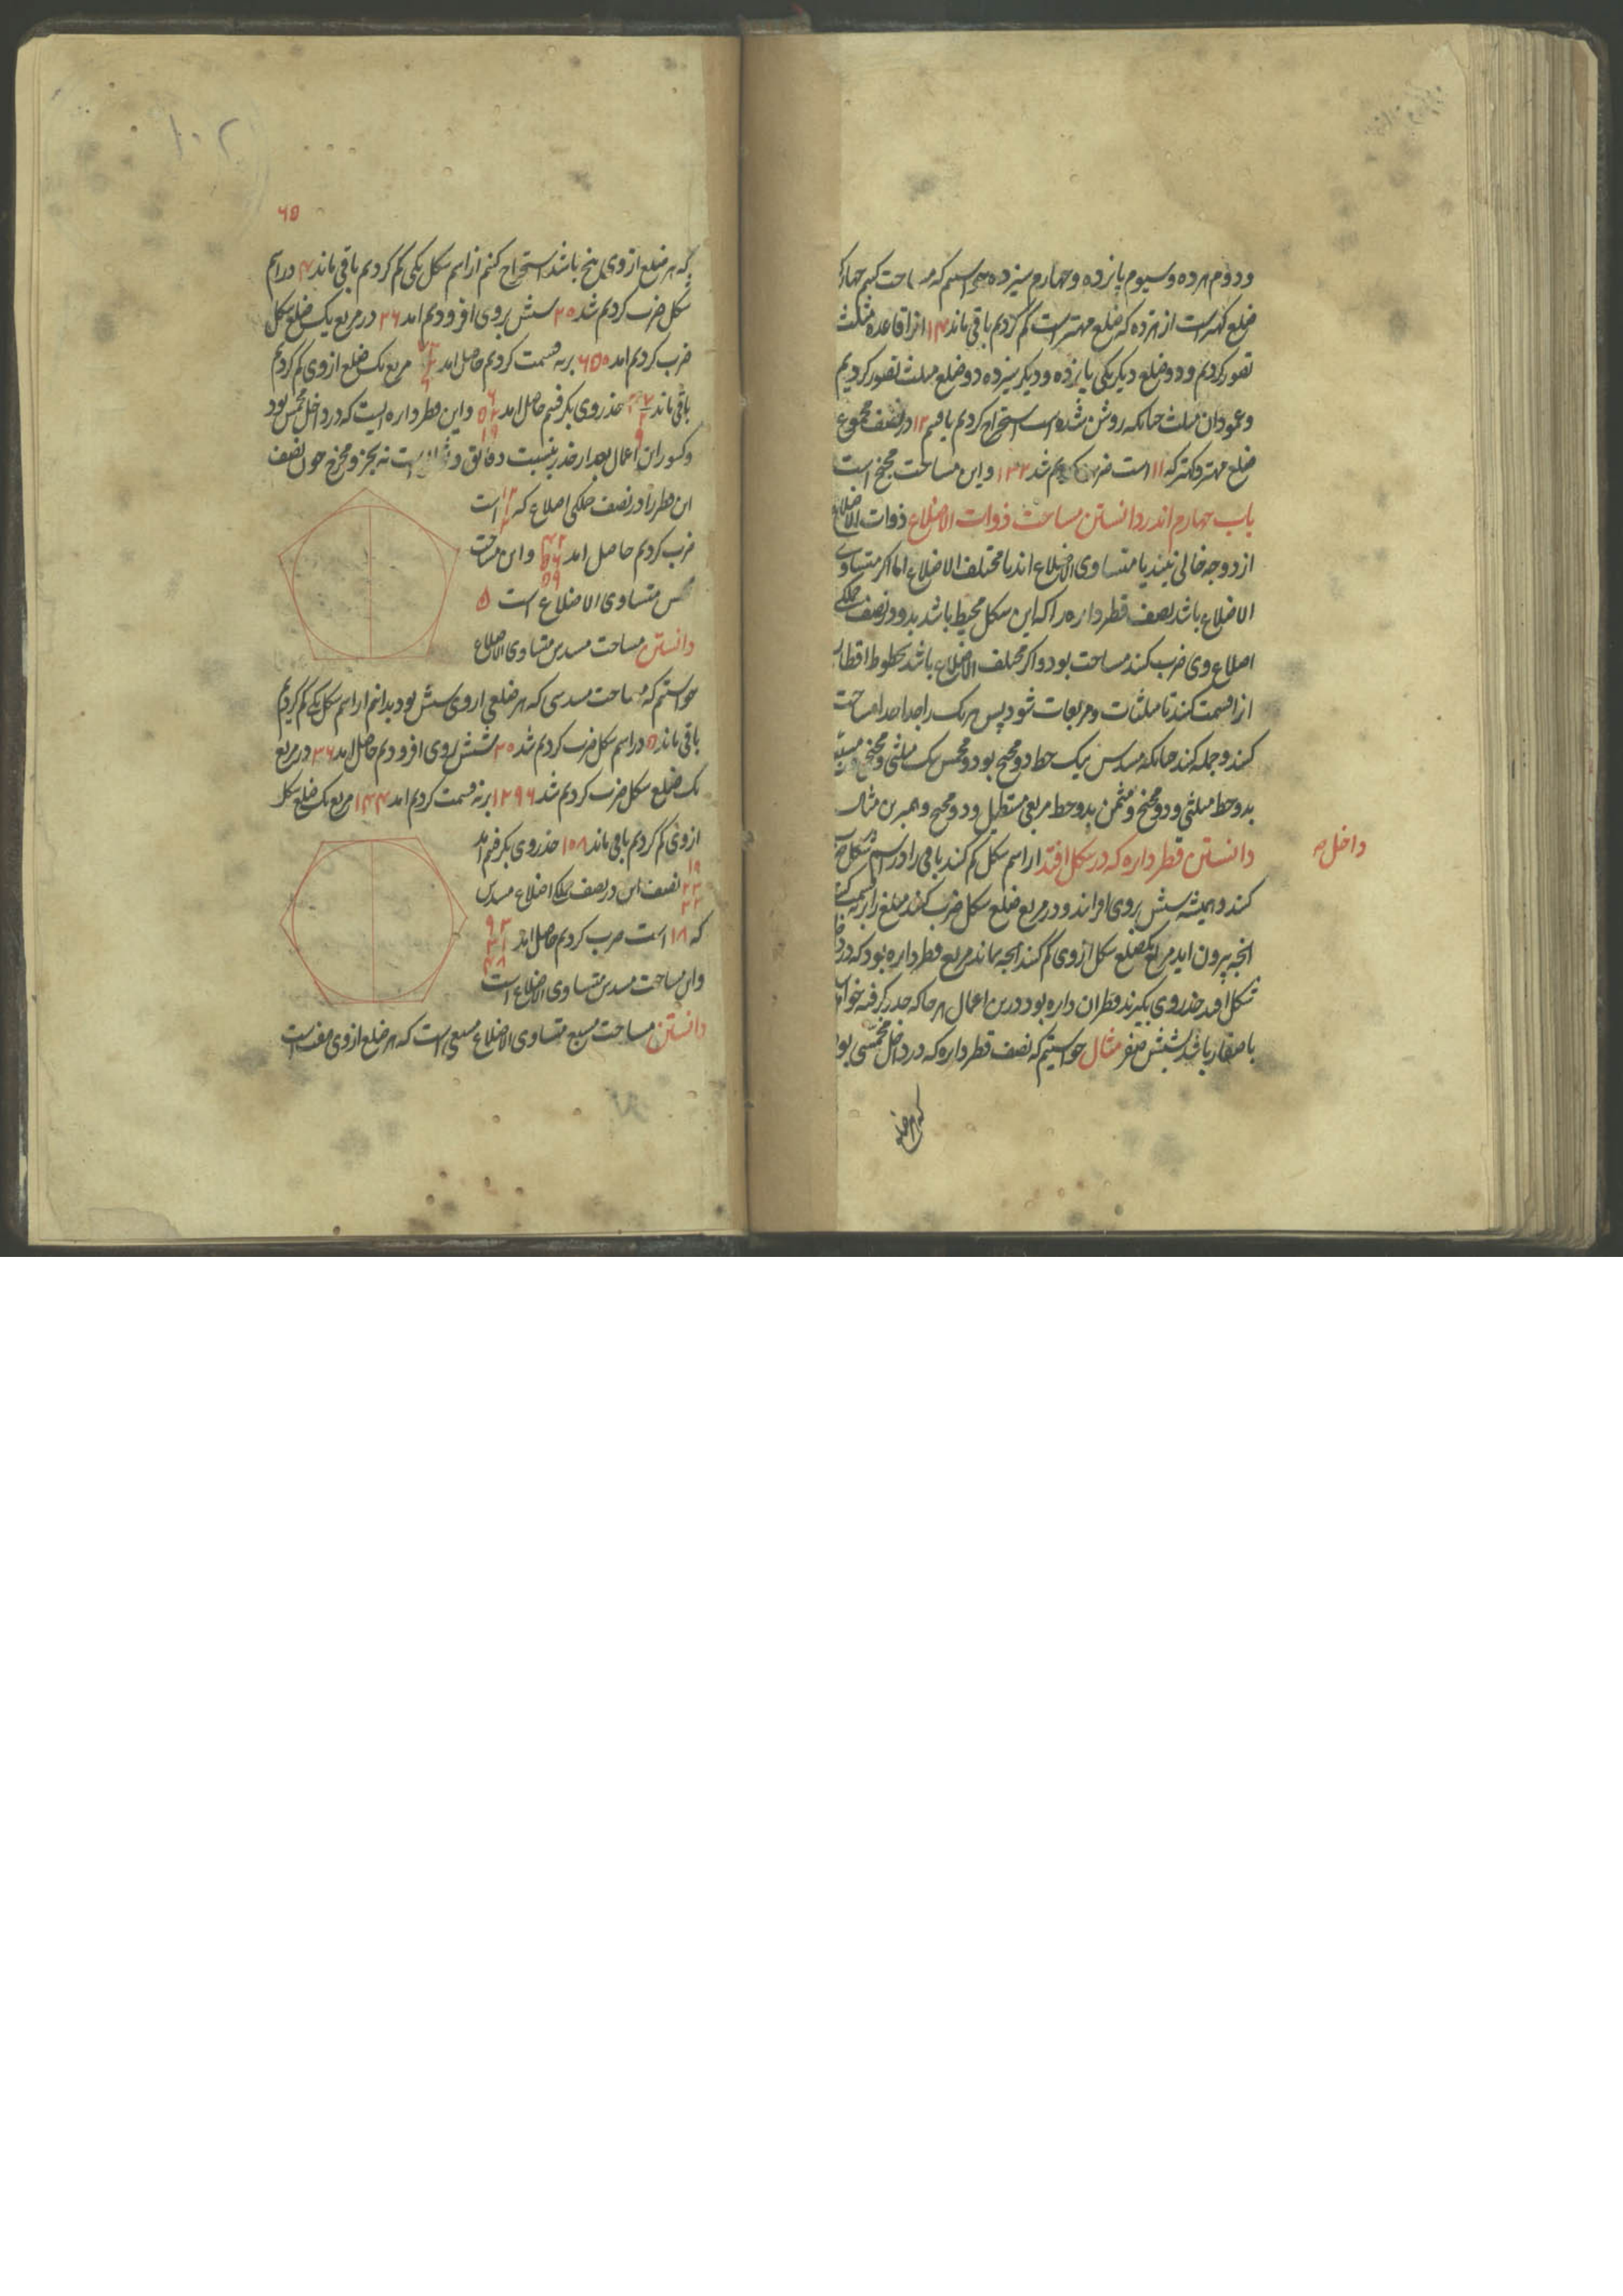 ودوم هرده وسیوم پانزده وچهارم سیزده خواستیم که مساحت کنیم چهارکه
ضلع کهتر است از هرده که ضلع مهتر است کم کردیم باقی ماند ۱۴ انرا قاعده مثلث
تصور کردیم ودو ضلع دیگر یکی پانزده ودیگر سیزده دو ضلع مثلث تصور کردیم
وعمود ان مثلث چنانکه روشن شده است استخراج کردیم یافتیم ۱۲ در نصف مجموع
ضلع مهتر وکهتر که ۱۱ است ضرب کردیم شد ۱۳۲ واین مساحت مجنح است
باب چهارم اندر دانستن مساحت ذوات الاضلاع ذوات الاضلاع
از دو وجه خالی نیند یا متساوی الاضلاع اند یا مختلف الاضلاع اما اکر متساوی
الاضلاع باشد نصف قطر دایره را که این شکل محیط باشد بدو در نصف جملکی
اضلاع وی ضرب کنند مساحت بود واکر مختلف الاضلاع باشد بخطوط اقطار
انرا قسمت کنند تا مثلثات ومربعات شود پس هریک را جدا جدا مساحت
کنند وجمله کنند چنانکه مسدس بیک خط دو مجنح بود ومخمس بیک مثلثی ومجنح
بدو خط مثلثی ودو مجنح ومثمن بدو خط مربعی مستطیل ودو مجنح وهمبرین مثال
دانستن قطر دایره که در شکل افتد از اسم شکل یکی کم کنند باقی را در اسم شکل ضرب
داخل صح
کنند وهمیشه شش بروی افزایند ودر مربع ضلع شکل ضرب کنند مبلغ را بر نه قسمت کنند
انچه بیرون اید مربع یکضلع شکل ازوی کم کنند انچه بماند مربع قطر دایره بود که در
شکل افتد جذر وی بگیرند قطر ان دایره بود ودرین اعمال هرجا که جذر گرفته خواهد
باصفار باشد شش صفر مثال خواستیم که نصف قطر دایره که در داخل مخمسی بود
که هر ضلع
۶۵
که هر ضلع از وی پنج باشد استخراج کنیم از اسم شکل یکی کم کردیم باقی ماند ۴ در اسم
شکل ضرب کردیم شد ۲۰ شش بروی افزودیم امد ۲۶ در مربع یک ضلع شکل
ضرب کردیم امد ۶۵۰ بر نه قسمت کردیم حاصل امد مربع یک ضلع از وی کم کردیم
باقی ماند جذر وی بگرفتیم حاصل امد واین قطر دایره ایست که در داخل مخمس بود
وکسور این اعمال بعد از جذر بنسبت دقایق وثوانی است نه بجزو ومخرج چون نصف
این قطر را در نصف جملکی اضلاع که است
ضرب کردیم حاصل امد واین مساحت
مخمس متساوی الاضلاع است ۵
دانستن مساحت مسدس متساوی الاضلاع
خواستیم که مساحت مسدسی که هر ضلعی از وی شش بود بدانیم از اسم شکل یکی کم کردیم
باقی ماند ۵ در اسم شکل ضرب کردیم شد ۳۰ شش بروی افزودیم حاصل امد ۳۶ در مربع
یک ضلع شکل ضرب کردیم شد ۱۲۹۶ بر نه قسمت کردیم امد ۱۴۴ مربع یک ضلع شکل
ازوی کم کردیم باقی ماند ۱۰۸ جذر وی بگرفتیم امد
نصف این در نصف جملکی اضلاع مسدس
که ۱۸ است ضرب کردیم حاصل امد
واین مساحت مسدس متساوی الاضلاع است
دانستن مساحت مسبع متساوی الاضلاع مسبعی است که هر ضلع از وی هفت است